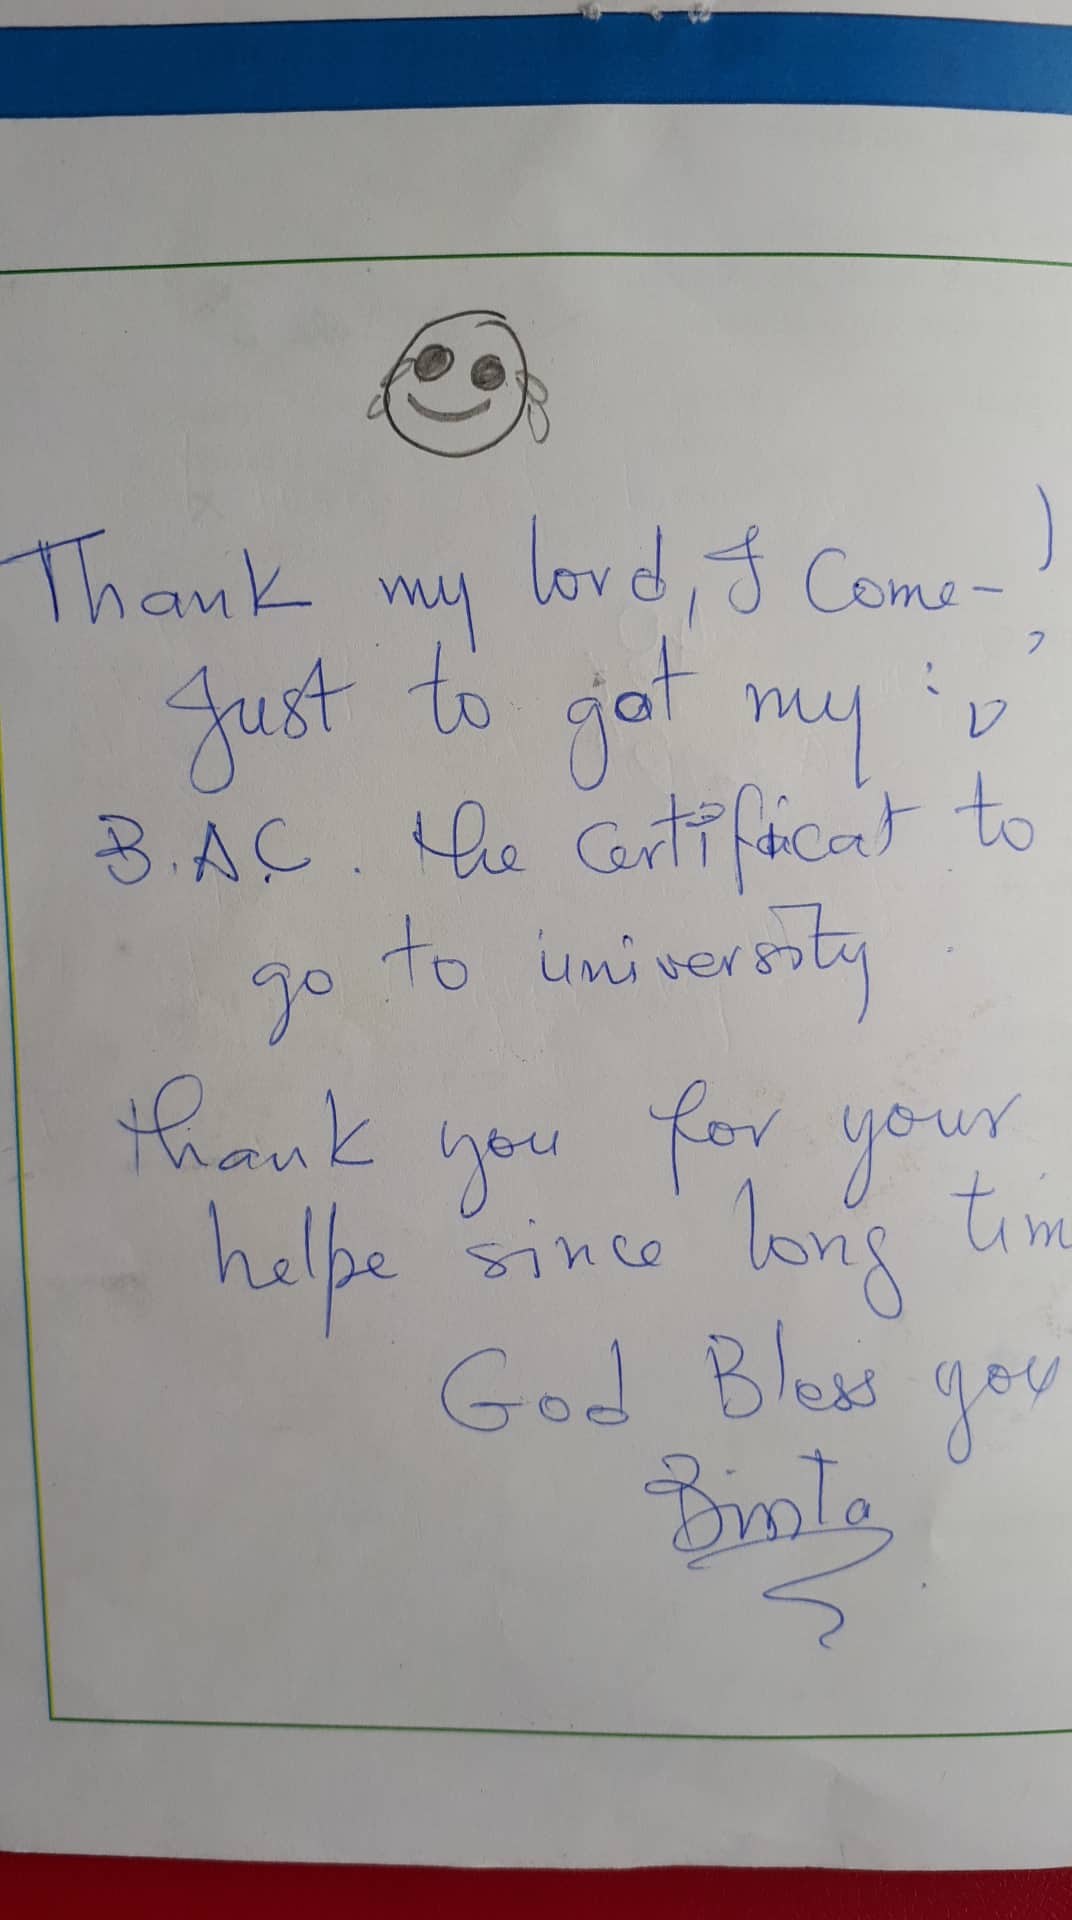 Thank my lord, I Come-
Just to got my
B.A.C. the Certificat to
go to university
thank you for your
helpe since long tim
God Bless you
Binta